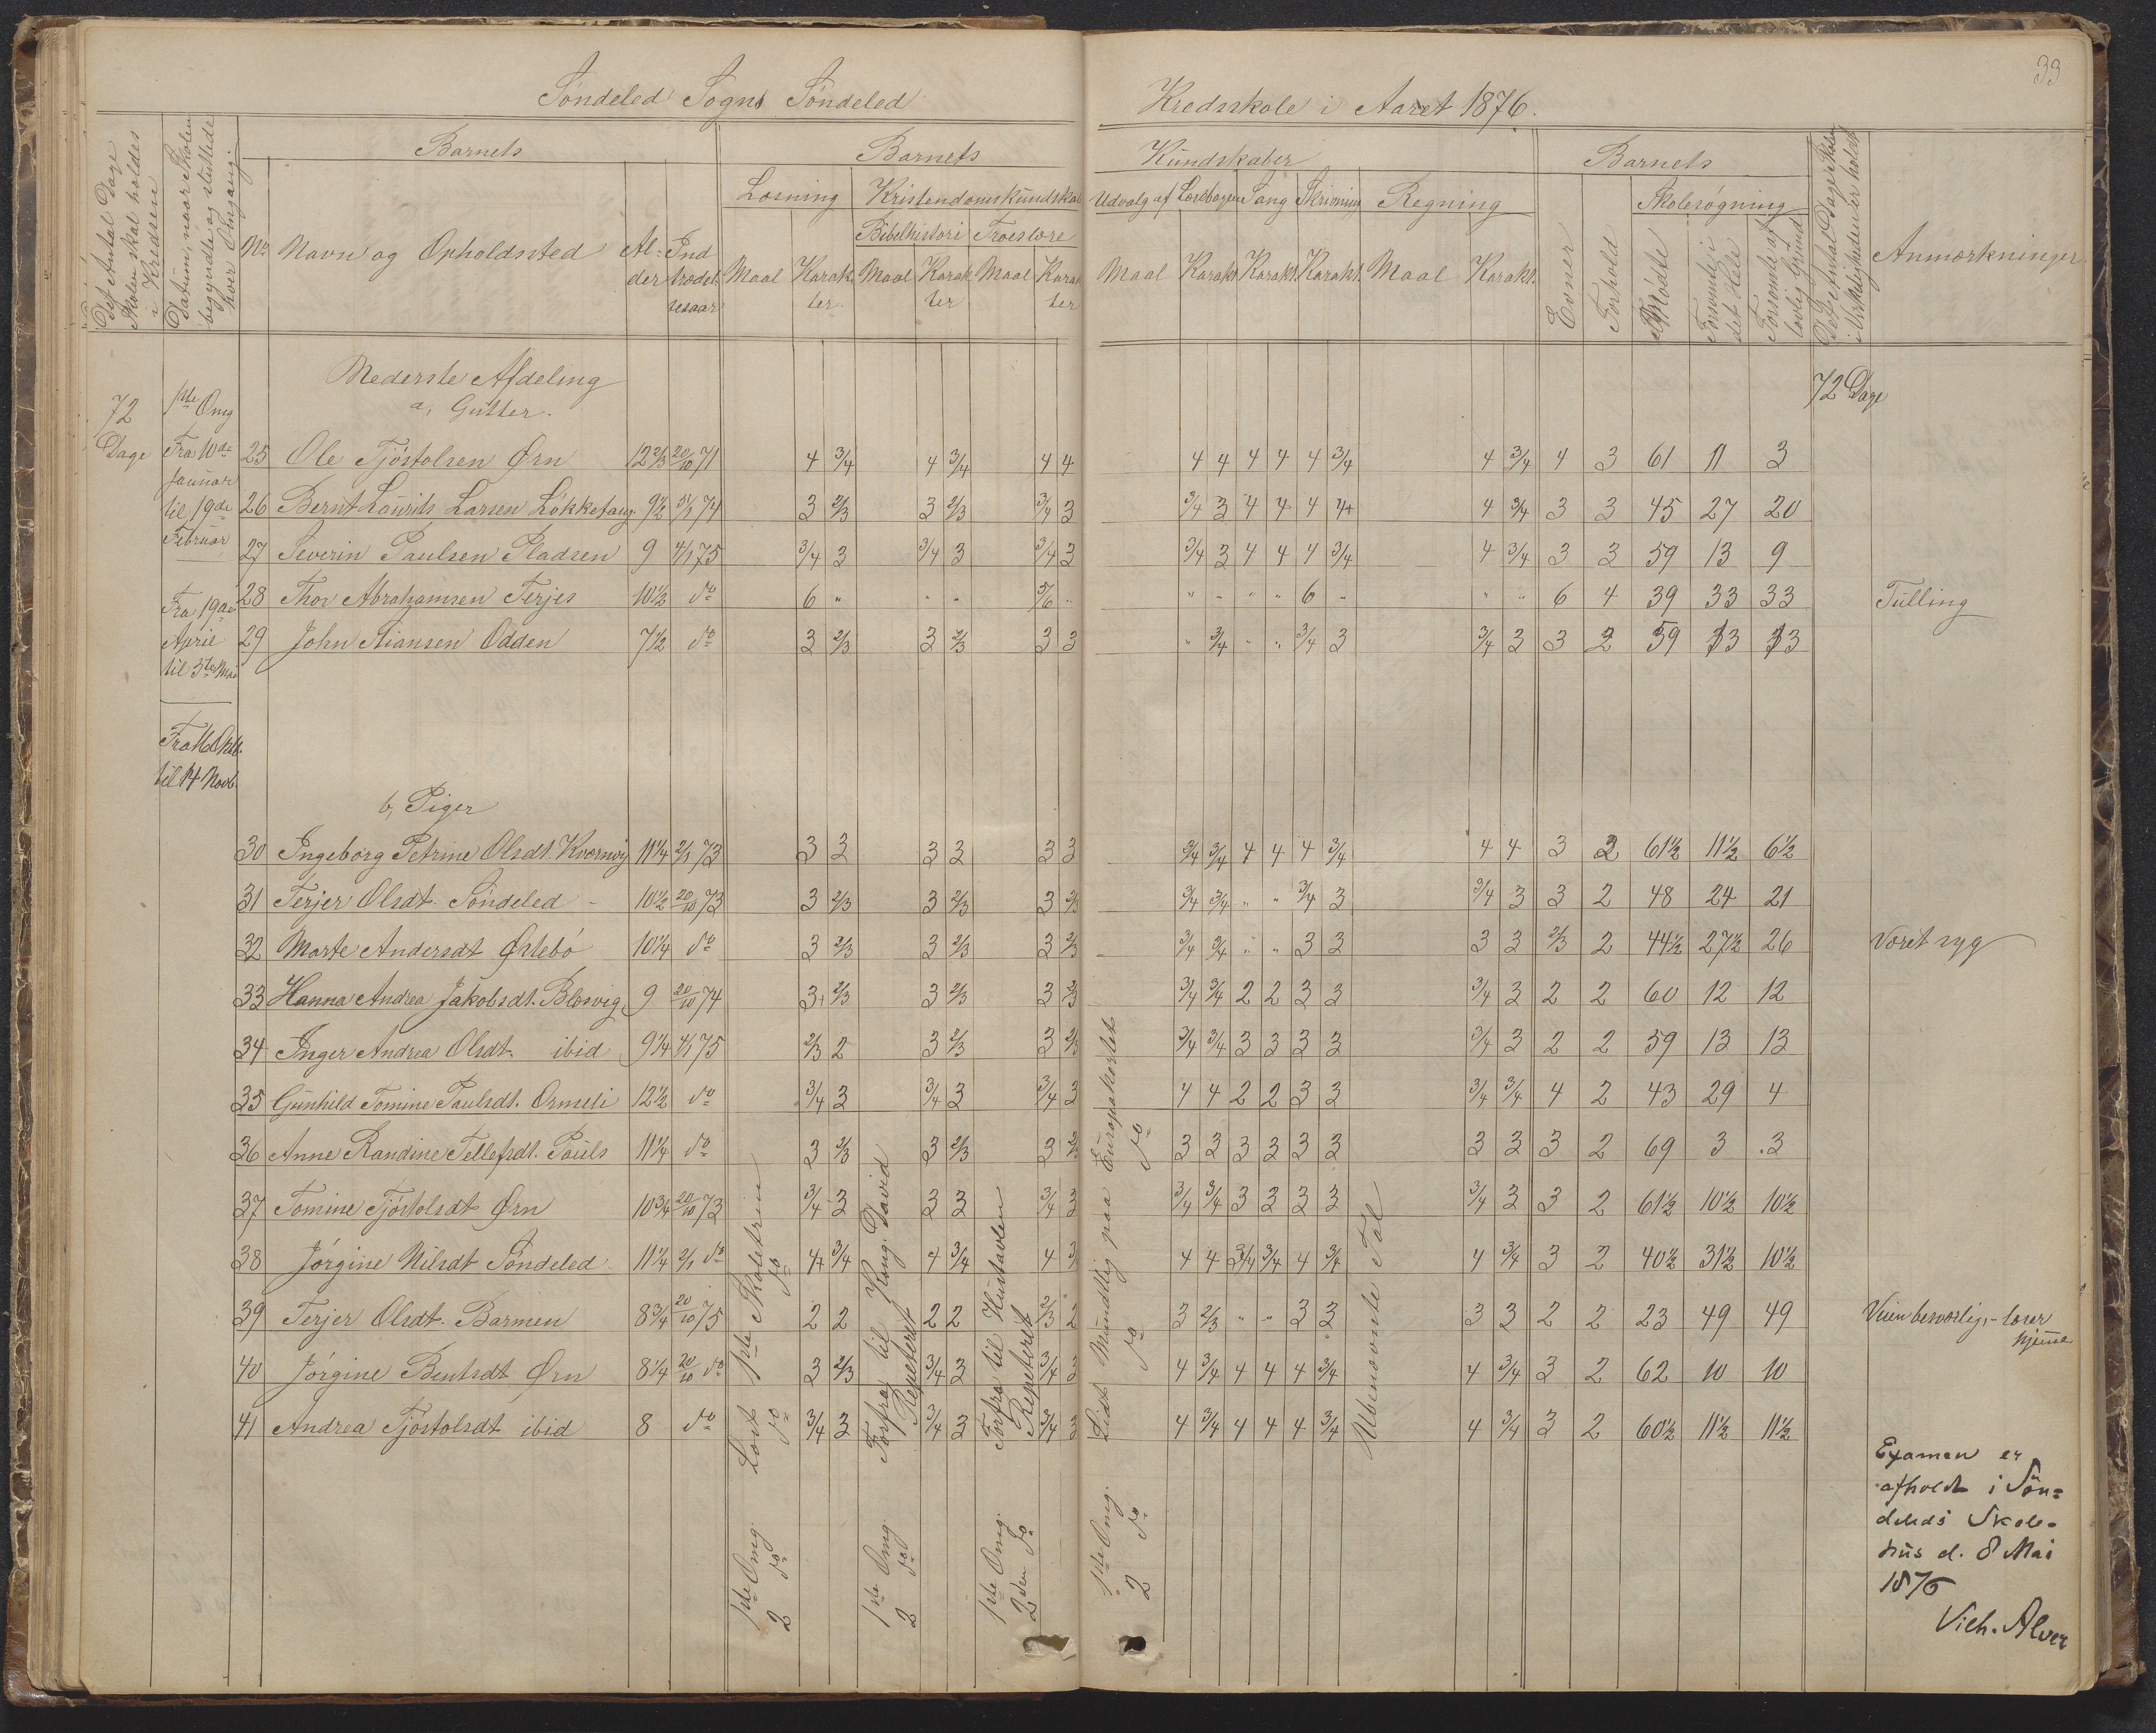 33
Söndeled Sogns Söndeled Kredsskole i Aaret 1876.
Det Antal Dage Skolen skal holdes i Kredsen
Datum, naar Skolen begyndte og sluttede hver Omgang.
Barnets
Barnets Kundskaber
Barnets
No Navn og Opholdssted
Alder
Indtrædelsesaar
Læsning
Maal Karakter
Kristendomskundskab
Bibelhistorie Troeslære
Maal Karakter Maal Karakter
Udvalg af Læsebogen Sang Skrivning Regning
Maal Karakt. Karakt. Karakt. Maal Karakt.
Evner
Forhold
Skolesøgning
Mødte
Forsømte i det Hele
Forsømte af lovlig Grund
Det Antal Dage Skolen i Virkeligheden er holdt
Anmærkninger.
Nederste Afdeling
a, Gutter.
72 Dage
72 Dage
1ste Omg
Fra 10de Januar
til 19de Februar
Fra 19de April
til 3die Mai
Fra 16 Oktb.
til 14 Novb.
25 Ole Tjöstolsen Ørn 12 2/3 20/10 71 4 3/4 4 3/4 4 4 4 4 4 4 4 3/4 4 3/4 4 3 61 11 3
26 Bernt Laurits Larsen Lökketang. 9 1/2 3/1 74 3 2/3 3 2/3 3/4 3 3/4 3 4 4 4 4+ 4 3/4 3 3 45 27 20
27 Severin Paulsen Pladsen 9 4/1 75 3/4 3 3/4 3 3/4 3 3/4 3 4 4 4 3/4 4 3/4 3 3 59 13 9
28 Thor Abrahamsen Terjes 10 1/2 do 6 " " " 5/6 " " " " " 6 " " " 6 4 39 33 33 Tulling
29 John Stiansen Odden 7 1/2 do 3 2/3 3 2/3 3 3 " 3/4 " " 3/4 3 3/4 3 3 2 59 13 13
b, Piger
30 Ingeborg Petrine Olsdt. Kvernvig 11 1/4 2/1 73 3 3 3 3 3 3 3/4 3/4 4 4 4 3/4 4 4 3 2 61 1/2 11 1/2 6 1/2
31 Terjer Olsdt. Söndeled 10 1/2 20/10 73 3 2/3 3 2/3 3 2/3 3/4 3/4 " " 3/4 3 3/4 3 3 2 48 24 21
32 Marte Andersdt Østebö 10 1/4 do 3 2/3 3 2/3 3 2/3 3/4 3/4 " " 3 3 3 3 2/3 2 44 1/2 27 1/2 26 Været syg
33 Hanna Andrea Jakobsdt. Blesvig 9 20/10 74 3+ 2/3 3 2/3 3 2/3 3/4 3/4 2 2 3 3 3/4 3 2 2 60 12 12
34 Inger Andrea Olsdt. ibid 9 3/4 4/1 75 2/3 2 3 2/3 3 2/3 3/4 3/4 3 3 3 3 3/4 3 2 2 59 13 13
35 Gunhild Tomine Paulsdt. Ormsli 12 1/2 do 3/4 3 3/4 3 3/4 3 4 4 2 2 3 3 3/4 3/4 4 2 43 29 4
36 Anne Randine Tellefsdt. Pauls 11 1/4 do 3 2/3 3 2/3 3 2/3 3 3 3 3 3 3 3 3 3 2 69 3 3
37 Tomine Tjöstolsdt Ørn 10 3/4 20/10 73 3/4 3 3 3 3/4 3 3/4 3/4 3 3 3 3 3/4 3 3 2 61 1/2 10 1/2 10 1/2
38 Jörgine Nilsdt Söndeled. 11 1/4 2/1 do 4+ 3/4 4 3/4 4 3/4 4 4 3/4 3/4 4 3/4 4 3/4 3 2 40 1/2 31 1/2 10 1/2
39 Terjer Olsdt. Barmen 8 3/4 20/10 75 2 2 2 2 2/3 2 3 2/3 " " 3 3 3 3 2 2 23 49 49 Veien besværlig, - læser hjemme
40 Jörgine Bentsdt Ørn 8 1/4 20/10 do 3 2/3 3/4 3 3/4 3 4 3/4 4 4 4 3/4 4 3/4 3 2 62 10 10
41 Andrea Tjöstolsdt ibid 8 do 3/4 3 3/4 3 3/4 3 4 3/4 4 4 4 3/4 4 3/4 3 2 60 1/2 11 1/2 11 1/2
1ste Omg. Læst 1ste Skoletrin
2 do do do
1ste Omg. Forfra til Kong David
2 do Repeteret
1ste Omg. Forfra til Hustavlen
2den do Repeteret
1ste Omg. Lidt Mundtlig paa Europakortet
2 do do do
Ubenævnte Tal
Examen er
afholdt i Sön=
deleds Skole-
hus d. 8 Mai
1876
Vilh. Alver